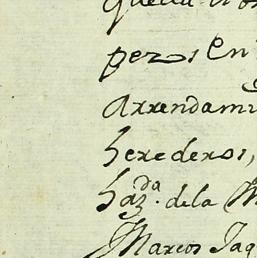 pezos en
Arrendami
herederos,
haz.da de la M
Marcos Jaq